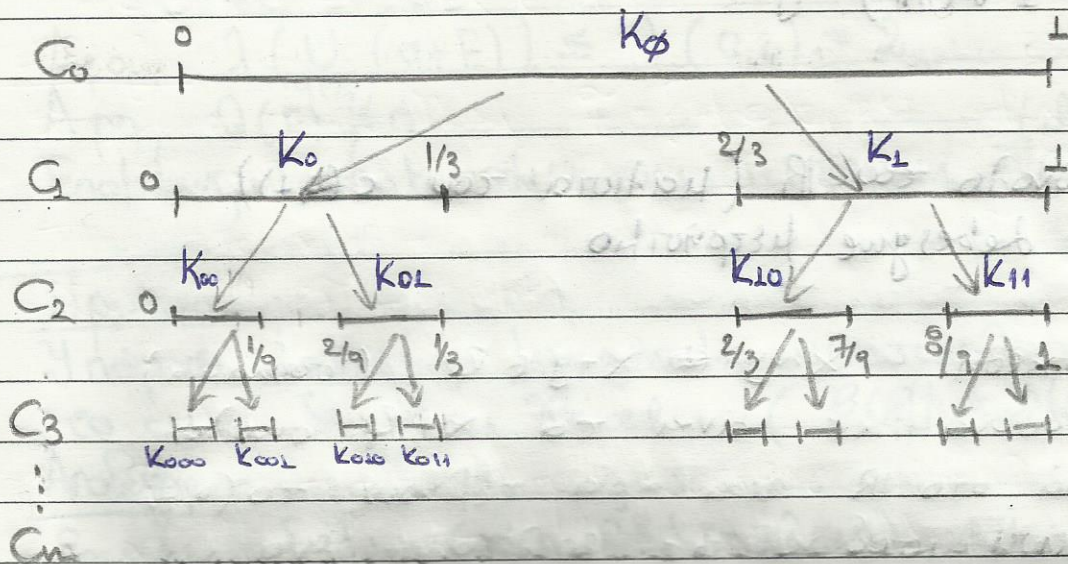 0 K∅ 1
C₀
K₀ 1/3 2/3 K₁ 1
C₁ 0
K₀₀ K₀₁ K₁₀ K₁₁
C₂ 0
1/9 2/9 1/3 2/3 7/9 8/9 1
C₃
K₀₀₀ K₀₀₁ K₀₁₀ K₀₁₁
⋮
Cₙ